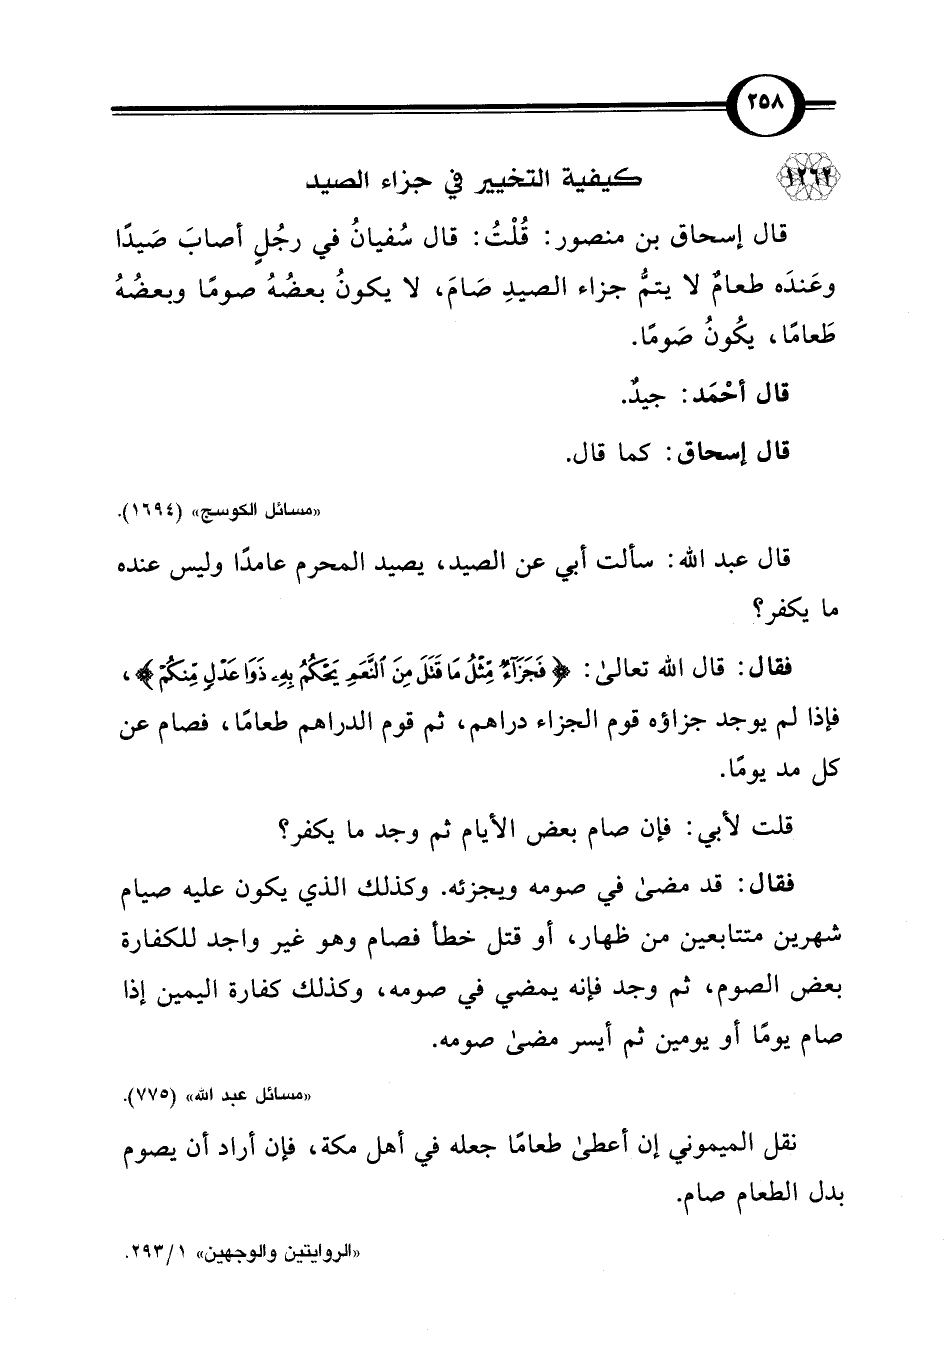 ٢٥٨
١٢٦٢ كيفية التخيير في جزاء الصيد
قال إسحاق بن منصور: قُلْتُ: قال سُفيانُ في رجُلٍ أصابَ صَيدًا
وعَندَه طعامٌ لا يتمُّ جزاء الصيدِ صَامَ، لا يكونُ بعضُهُ صومًا وبعضُهُ
طَعامًا، يكُونُ صَومًا.
قال أحْمَد: جيدٌ.
قال إسحاق: كما قال.
«مسائل الكوسج» (١٦٩٤).
قال عبد الله: سألت أبي عن الصيد، يصيد المحرم عامدًا وليس عنده
ما يكفر؟
فقال: قال الله تعالىٰ: ﴿فَجَزَآءٌ مِّثْلُ مَا قَتَلَ مِنَ ٱلنَّعَمِ يَحْكُمُ بِهِۦ ذَوَا عَدْلٍ مِّنكُمْ﴾،
فإذا لم يوجد جزاؤه قوم الجزاء دراهم، ثم قوم الدراهم طعامًا، فصام عن
كل مد يومًا.
قلت لأبي: فإن صام بعض الأيام ثم وجد ما يكفر؟
فقال: قد مضىٰ في صومه ويجزئه. وكذلك الذي يكون عليه صيام
شهرين متتابعين من ظهار، أو قتل خطأ فصام وهو غير واجد للكفارة
بعض الصوم، ثم وجد فإنه يمضي في صومه، وكذلك كفارة اليمين إذا
صام يومًا أو يومين ثم أيسر مضىٰ صومه.
«مسائل عبد الله» (٧٧٥).
نقل الميموني إن أعطىٰ طعامًا جعله في أهل مكة، فإن أراد أن يصوم
بدل الطعام صام.
«الروايتين والوجهين» ٢٩٣/١.